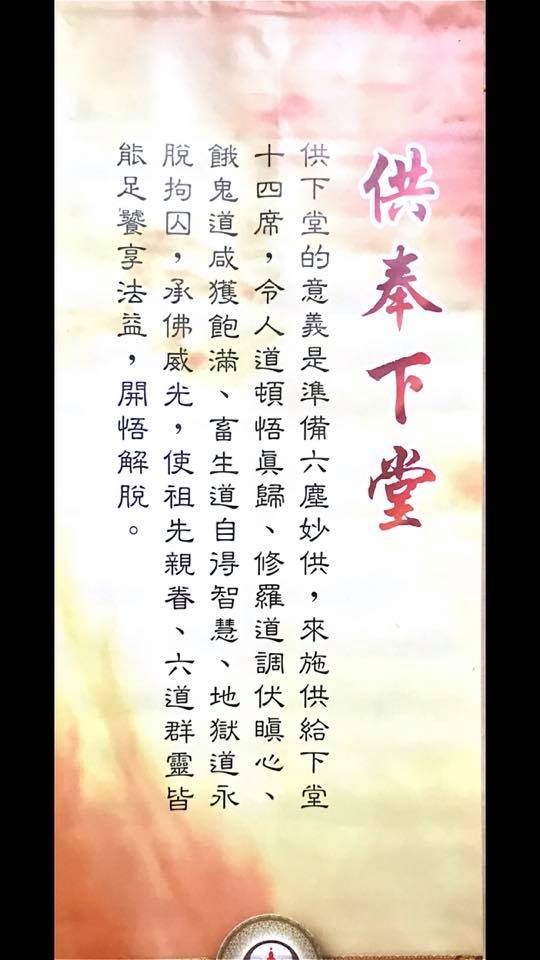 供奉下堂
供下堂的意義是準備六塵妙供，來施供給下堂
十四席，令人道頓悟真歸、修羅道調伏瞋心、
餓鬼道咸獲飽滿、畜生道自得智慧、地獄道永
脫拘囚，承佛威光，使祖先親眷、六道群靈皆
能足饗享法益，開悟解脫。